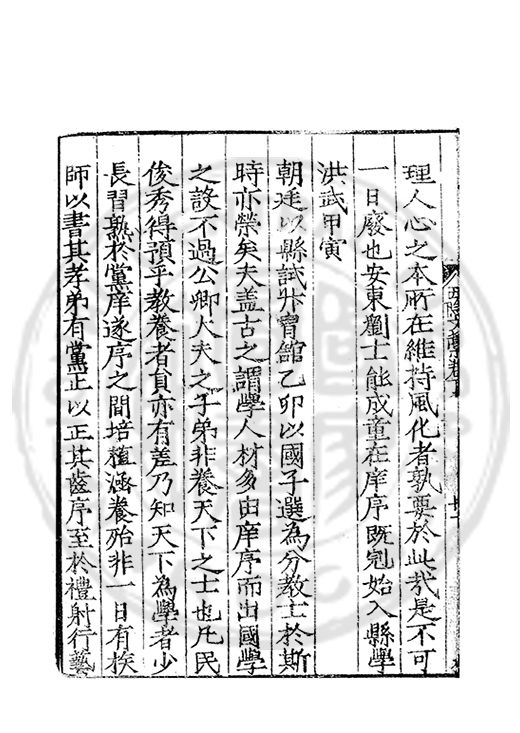 理人心之本所在維持風化者孰要於此哉是不可
一日廢也安東劉士能成童在庠序既冠始入縣學
洪武甲寅
朝廷以縣試升賓舘乙卯以國子選為分教士於斯
時亦榮矣夫盖古之謂學人材多由庠序而出國學
之設不過公卿大夫之子弟非養天下之士也凡民
俊秀得預乎教養者貟亦有差乃知天下為學者少
長習熟於黨庠遂序之間培植涵養殆非一日有族
師以書其孝弟有黨正以正其齒序至於禮射行藝